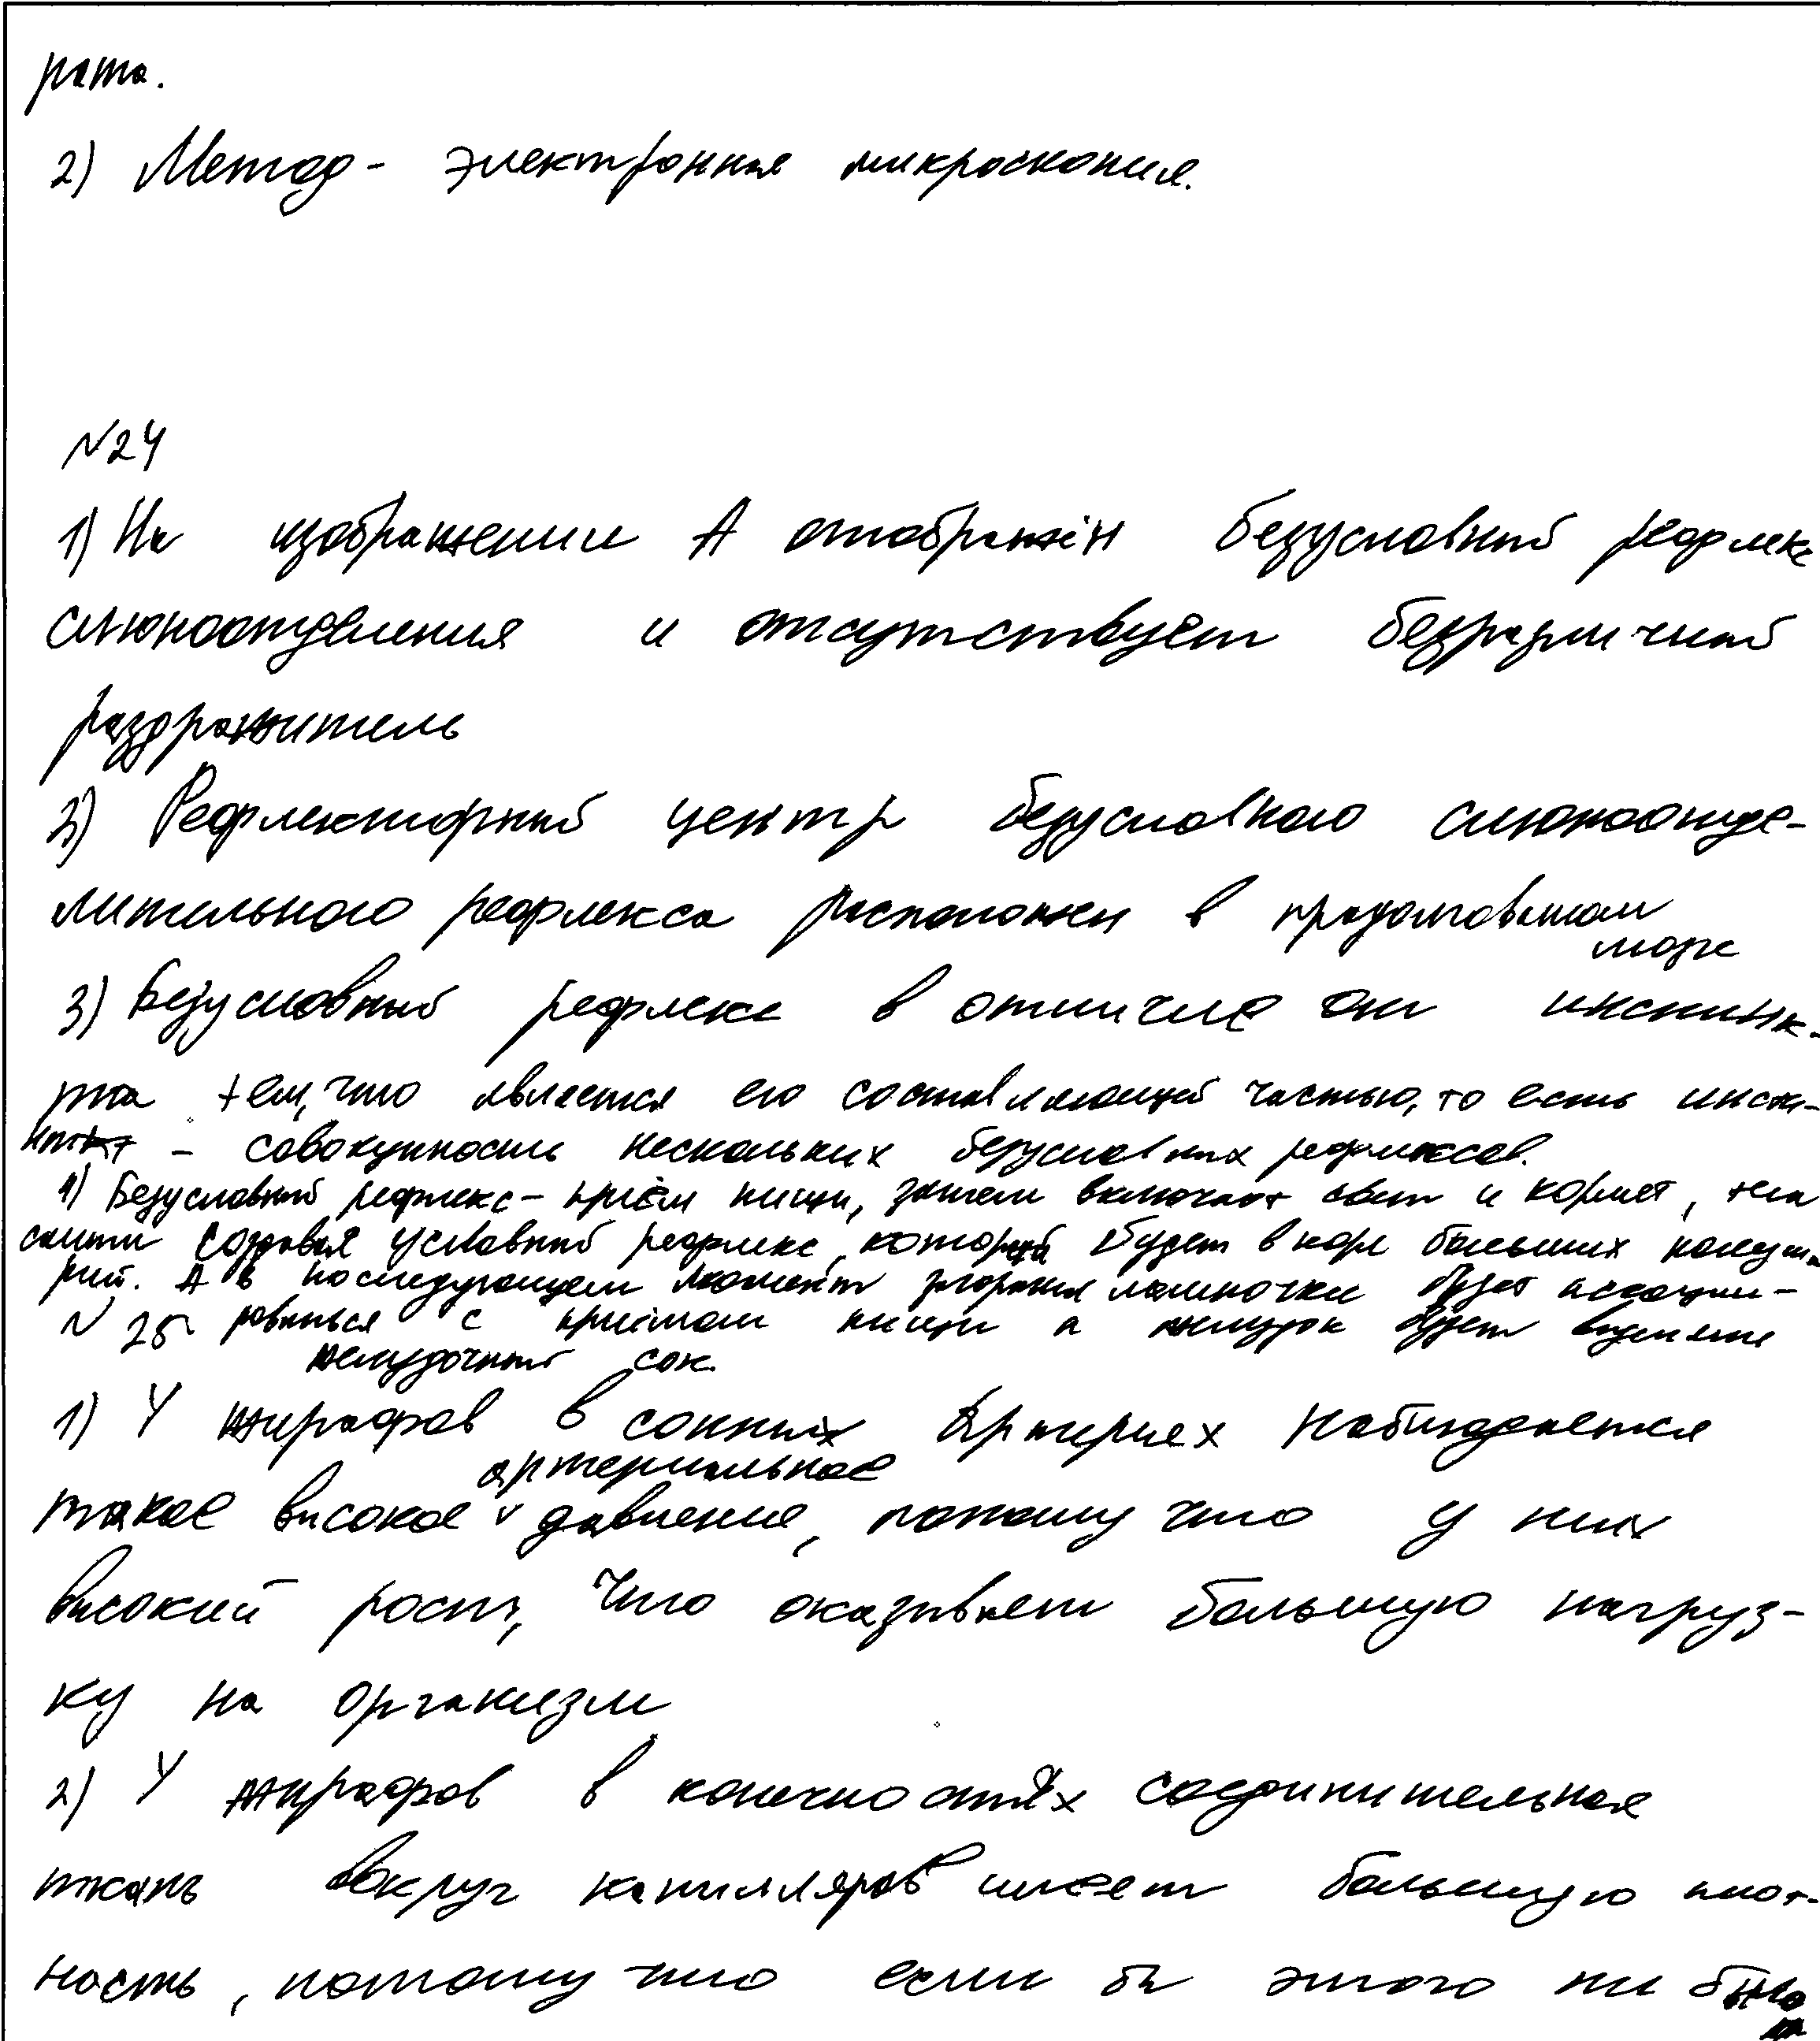 рата.
2) Метод - электронная микроскопия.
№24
1) На изображении А отображён безусловный рефлекс
слюноотделения и отсутствует безразличный
раздражитель
2) Рефлекторный центр безусловного слюноотде-
лительного рефлекса расположен в продолговатом
мозге
3) Безусловный рефлекс в отличие от инстинк-
та тем, что является его составляющей частью, то есть инсти-
нкт - совокупность нескольких безусловных рефлексов.
4) Безусловный рефлекс - приём пищи, затем включают свет и кормят, тем
самым создавая условный рефлекс, который будет в коре больших полуша
рий. А в последующем момент загорания лампочки будет ассоции-
роваться с приёмом пищи а желудок будет выделять
желудочный сок.
№ 25
1) У жирафов в сонных артериях наблюдается
артериальное
такое высокое v давление, потому что у них
высокий рост, что оказывает большую нагруз-
ку на организм
2) У жирафов в конечностях соединительная
ткань вокруг капилляров имеет большую плот-
ность, потому что если бы этого ни было